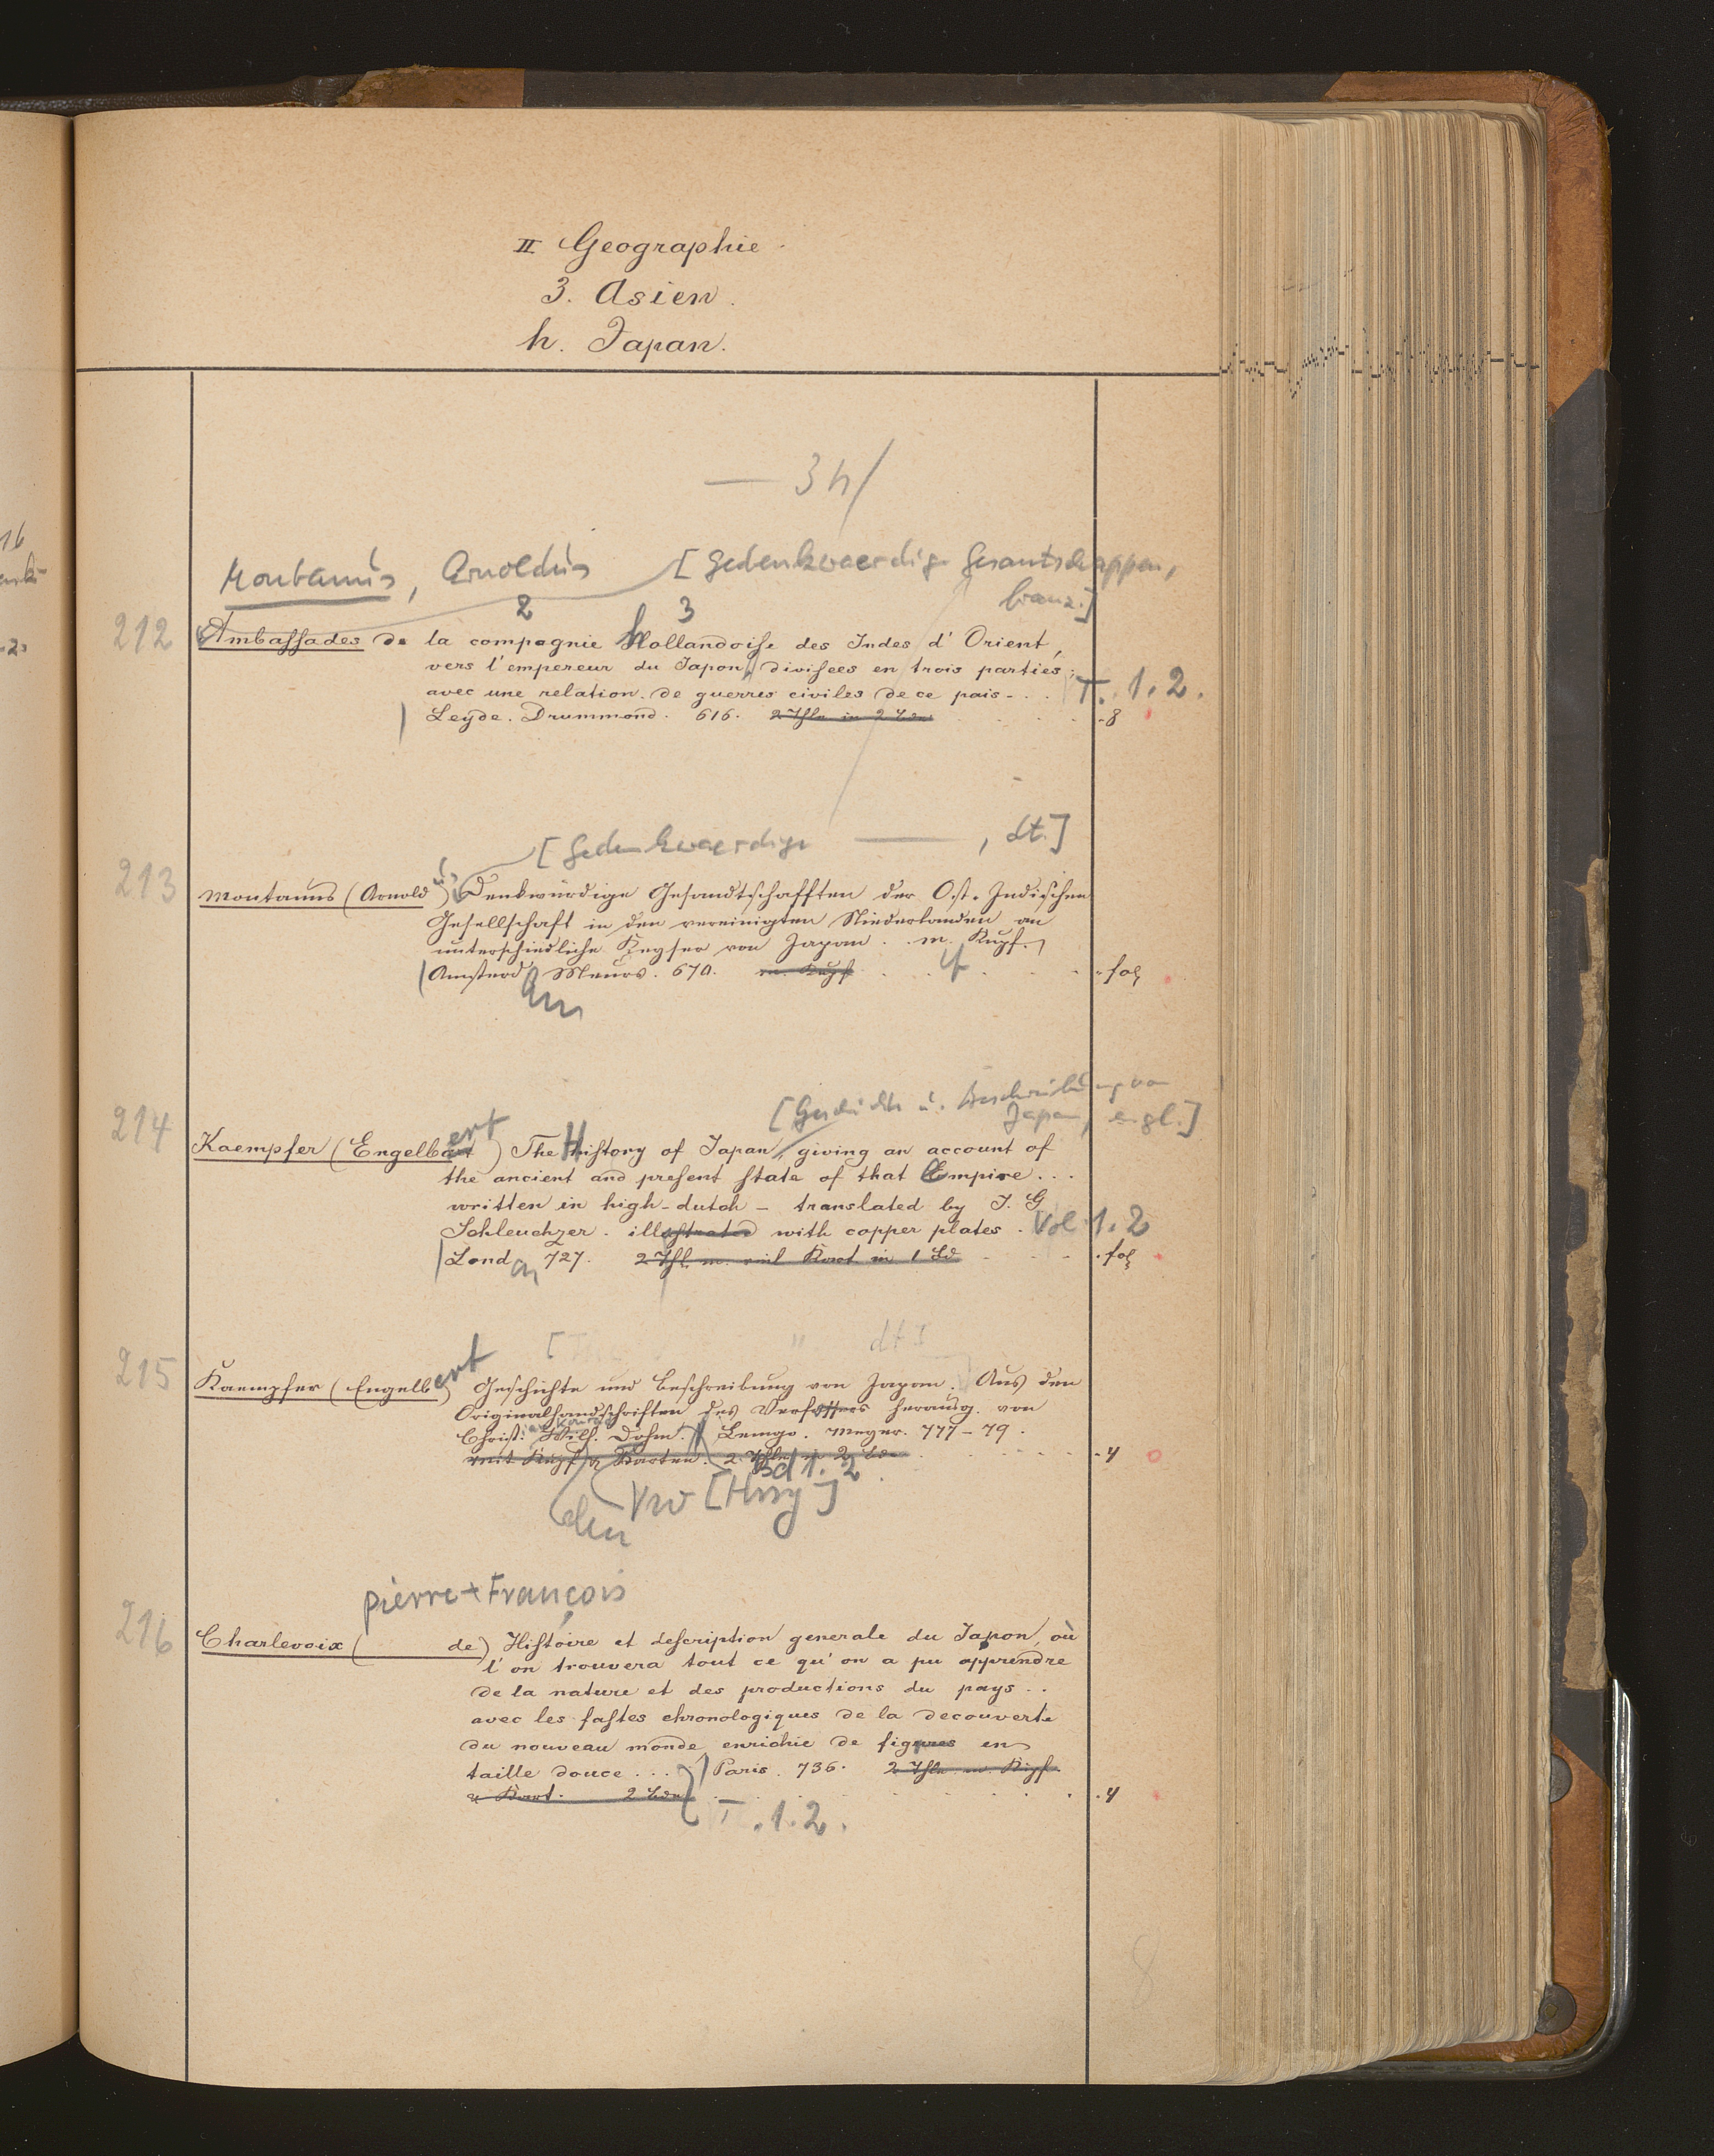 II Geographie
3. Asien.
h. Japan.
— 3 h /
Montanus, Arnoldus [Gedenkwaerdige Gesantschappen,
franz.]
2 3
212 Ambassades de la compagnie hollandoise des Indes d' Orient,
vers l'empereur du Japon, divisees en trois parties;
avec une relation de guerres civiles de ce pais - . . . T. 1. 2.
Leyde. Drummond. 616. 2 Thle in 2 Bdn . 8
[Gedenkwaerdige ———, dt.]
213 Montanus (Arnoldus) Denkwürdige Gesandtschafften der Ost-Indischen
Gesellschaft in den vereinigten Niederlanden an
unterschiedliche Keyser von Japan . . m. Kupf.
Amsterd. Meurs. 670. m. Kupf . fol
am
[Geschichte u. Beschreibung von
Japan, engl.]
214 Kaempfer (Engelbert) The History of Japan, giving an account of
the ancient and present state of that Empire . . .
written in high-dutch - translated by J. G
Scheuchzer. illustrated with copper plates . Vol 1. 2
Lond on 727. 2 Thl. m. viel Kart in 1 Bd . fol
[ " dt.]
215 Kaempfer (Engelbert) Geschichte und Beschreibung von Japan. Aus den
Originalhandschriften des Verfassers herausg. von
Christ: Wilh. Dohm. Lemgo. Meyer. 777-79.
mit Kupf u Karten. 2 Thle in 2 Bdn . 4
Bd 1. 2
VW [Hrsg]
Pierre-François
216 Charlevoix ( de) Histoire et description generale du Japon, où
l'on trouvera tout ce qu'on a pu apprendre
de la nature et des productions du pays . .
avec les fastes chronologiques de la decouverte
du nouveau monde enrichie de figures en
taille douce . . . Paris. 736. 2 Thle m. Kupf.
u Kart. 2 Bdn . 4
T. 1. 2.
8